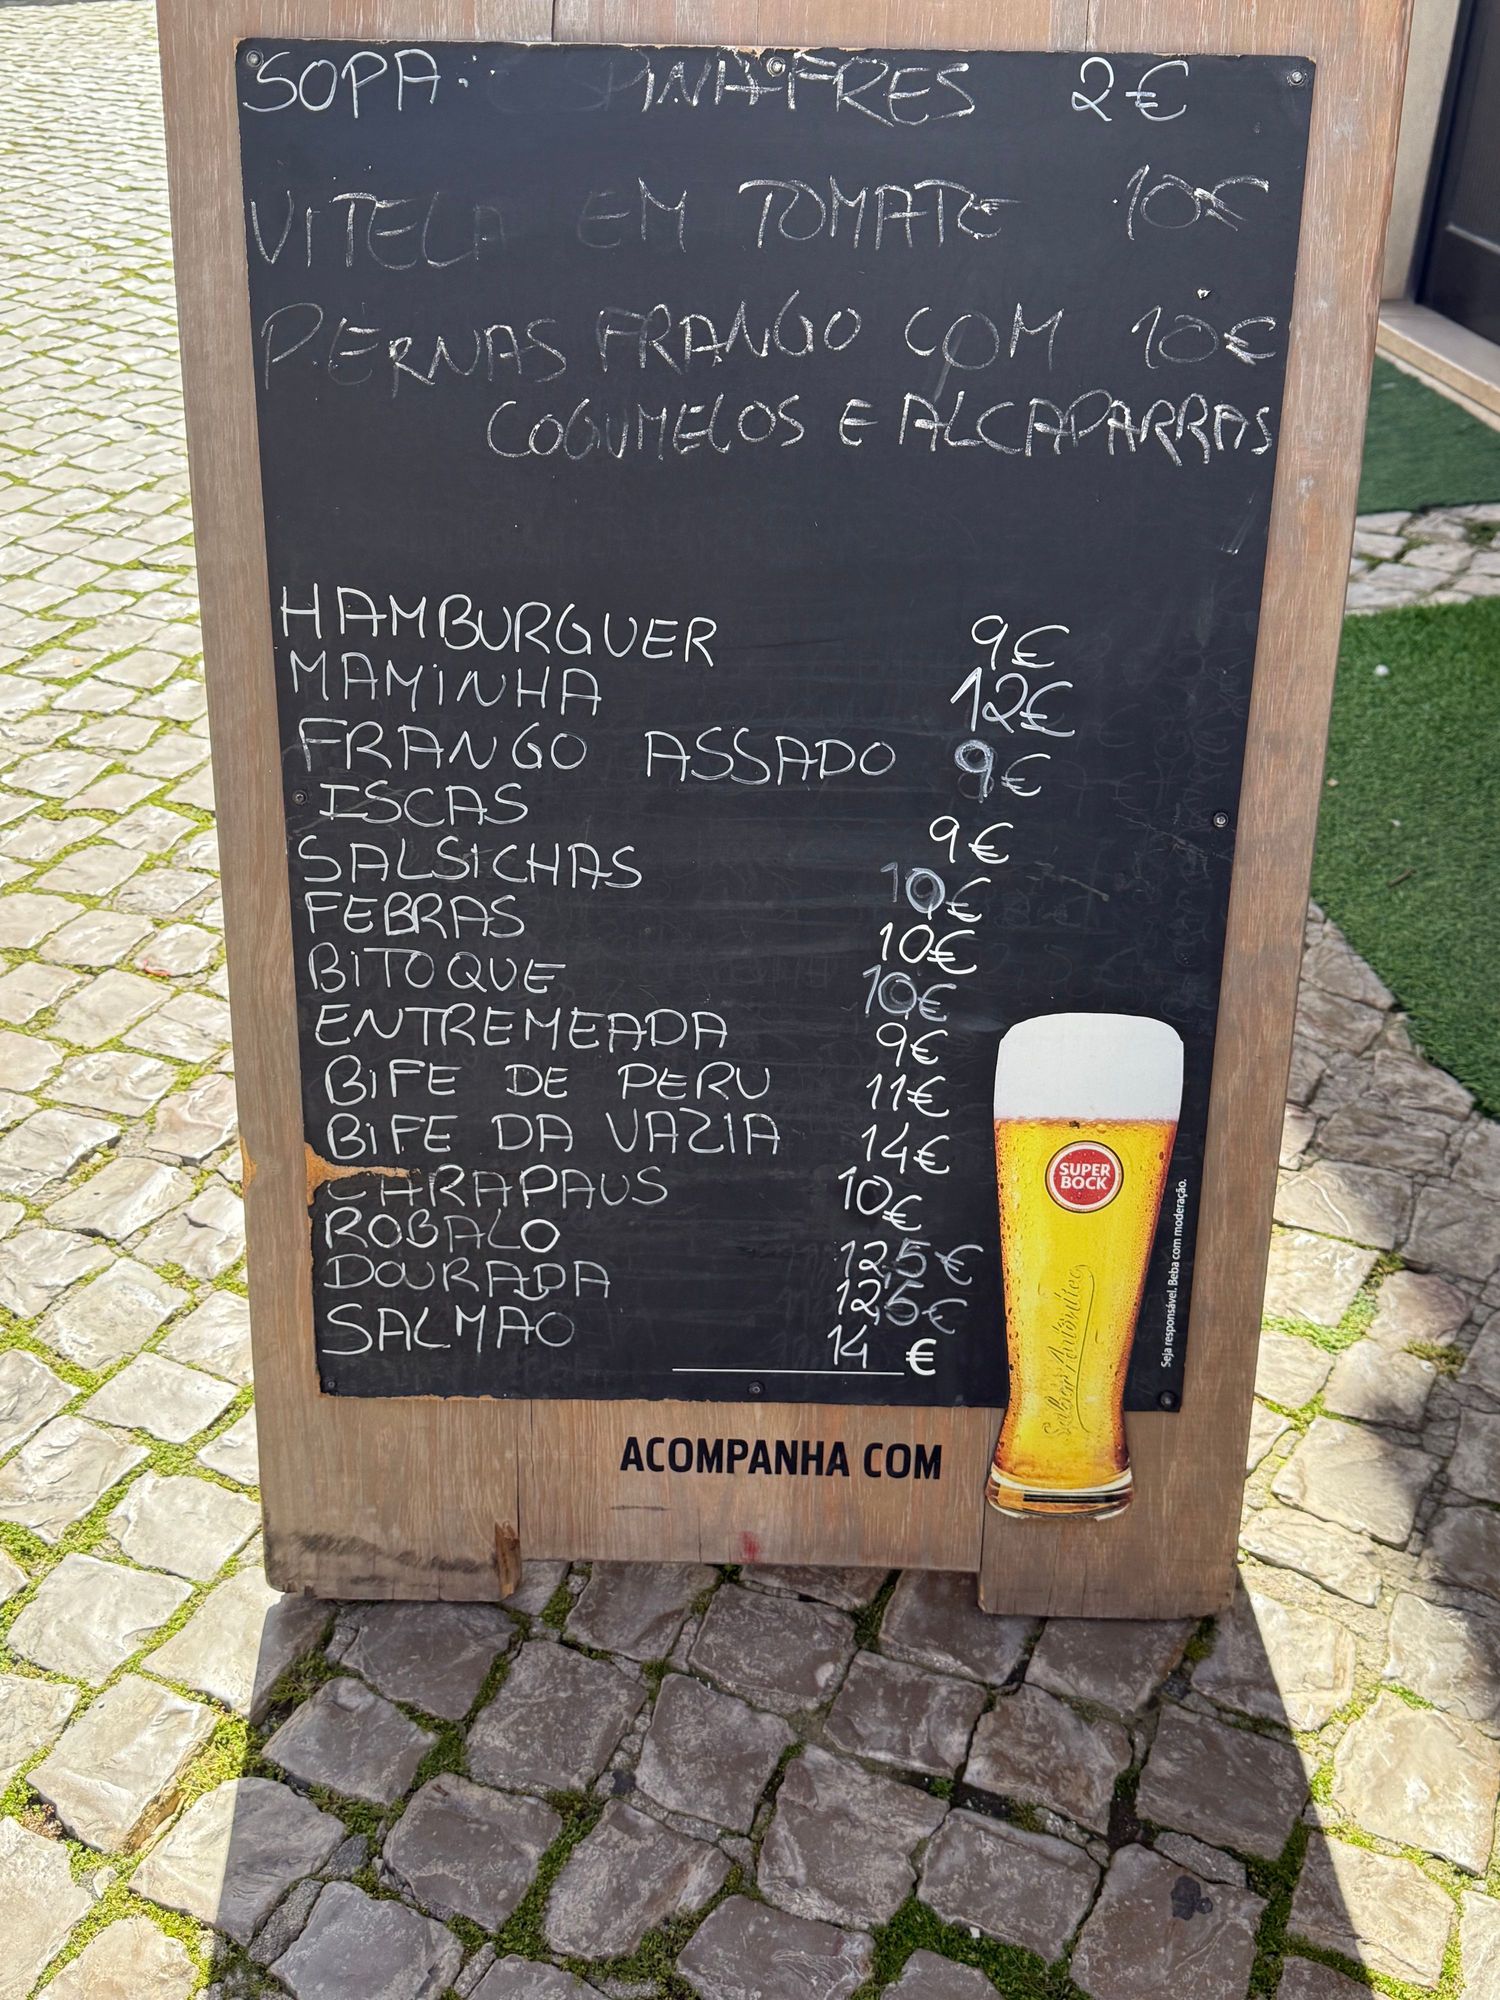 SOPA: ESPINAFRES 2€
VITELA EM TOMATE 10€
PERNAS FRANGO COM 10€
COGUMELOS E ALCAPARRAS
HAMBURGUER 9€
MAMINHA 12€
FRANGO ASSADO 9€
ISCAS 9€
SALSICHAS 10€
FEBRAS 10€
BITOQUE 10€
ENTREMEADA 9€
BIFE DE PERU 11€
BIFE DA VAZIA 14€
CARAPAUS 10€
ROBALO 12,5€
DOURADA 12,5€
SALMAO 14 €
SUPER
BOCK
Sabor Autêntico
Seja responsável. Beba com moderação.
ACOMPANHA COM